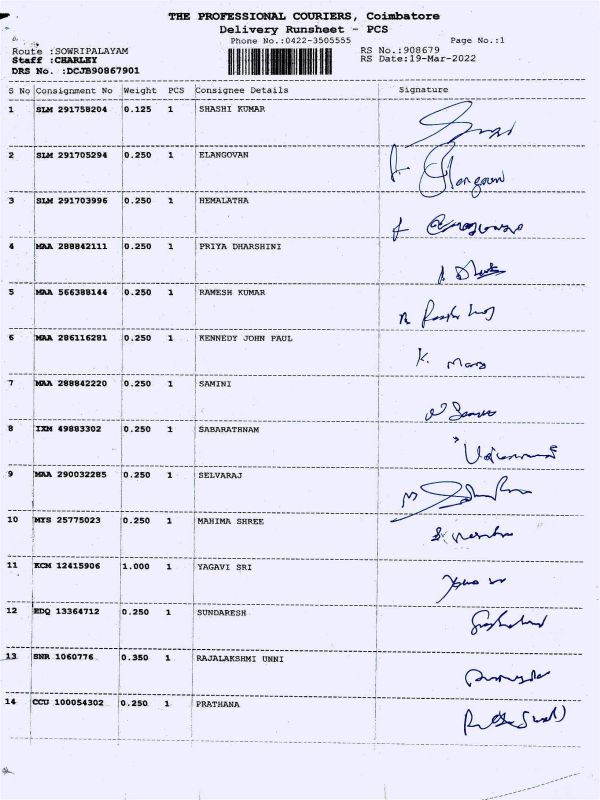 THE PROFESSIONAL COURIERS, Coimbatore
Delivery Runsheet - PCS
Phone No.:0422-3505555 Page No.:1
Route :SOWRIPALAYAM RS No.:908679
Staff :CHARLEY RS Date:19-Mar-2022
DRS No. :DCJB90867901
S No Consignment No Weight PCS Consignee Details Signature
1 SLM 291758204 0.125 1 SHASHI KUMAR
2 SLM 291705294 0.250 1 ELANGOVAN
3 SLM 291703996 0.250 1 HEMALATHA
4 MAA 288842111 0.250 1 PRIYA DHARSHINI
5 MAA 566388144 0.250 1 RAMESH KUMAR
6 MAA 286116281 0.250 1 KENNEDY JOHN PAUL
7 MAA 288842220 0.250 1 SAMINI
8 IXM 49883302 0.250 1 SABARATHNAM
9 MAA 290032285 0.250 1 SELVARAJ
10 MYS 25775023 0.250 1 MAHIMA SHREE
11 KCM 12415906 1.000 1 YAGAVI SRI
12 EDQ 13364712 0.250 1 SUNDARESH
13 SNR 1060776 0.350 1 RAJALAKSHMI UNNI
14 CCU 100054302 0.250 1 PRATHANA